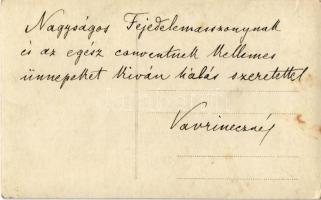 Nagyságos Fejedelemasszonynak
és az egész conventnek kellemes
ünnepeket kíván hálás szeretettel
Vavrinecné